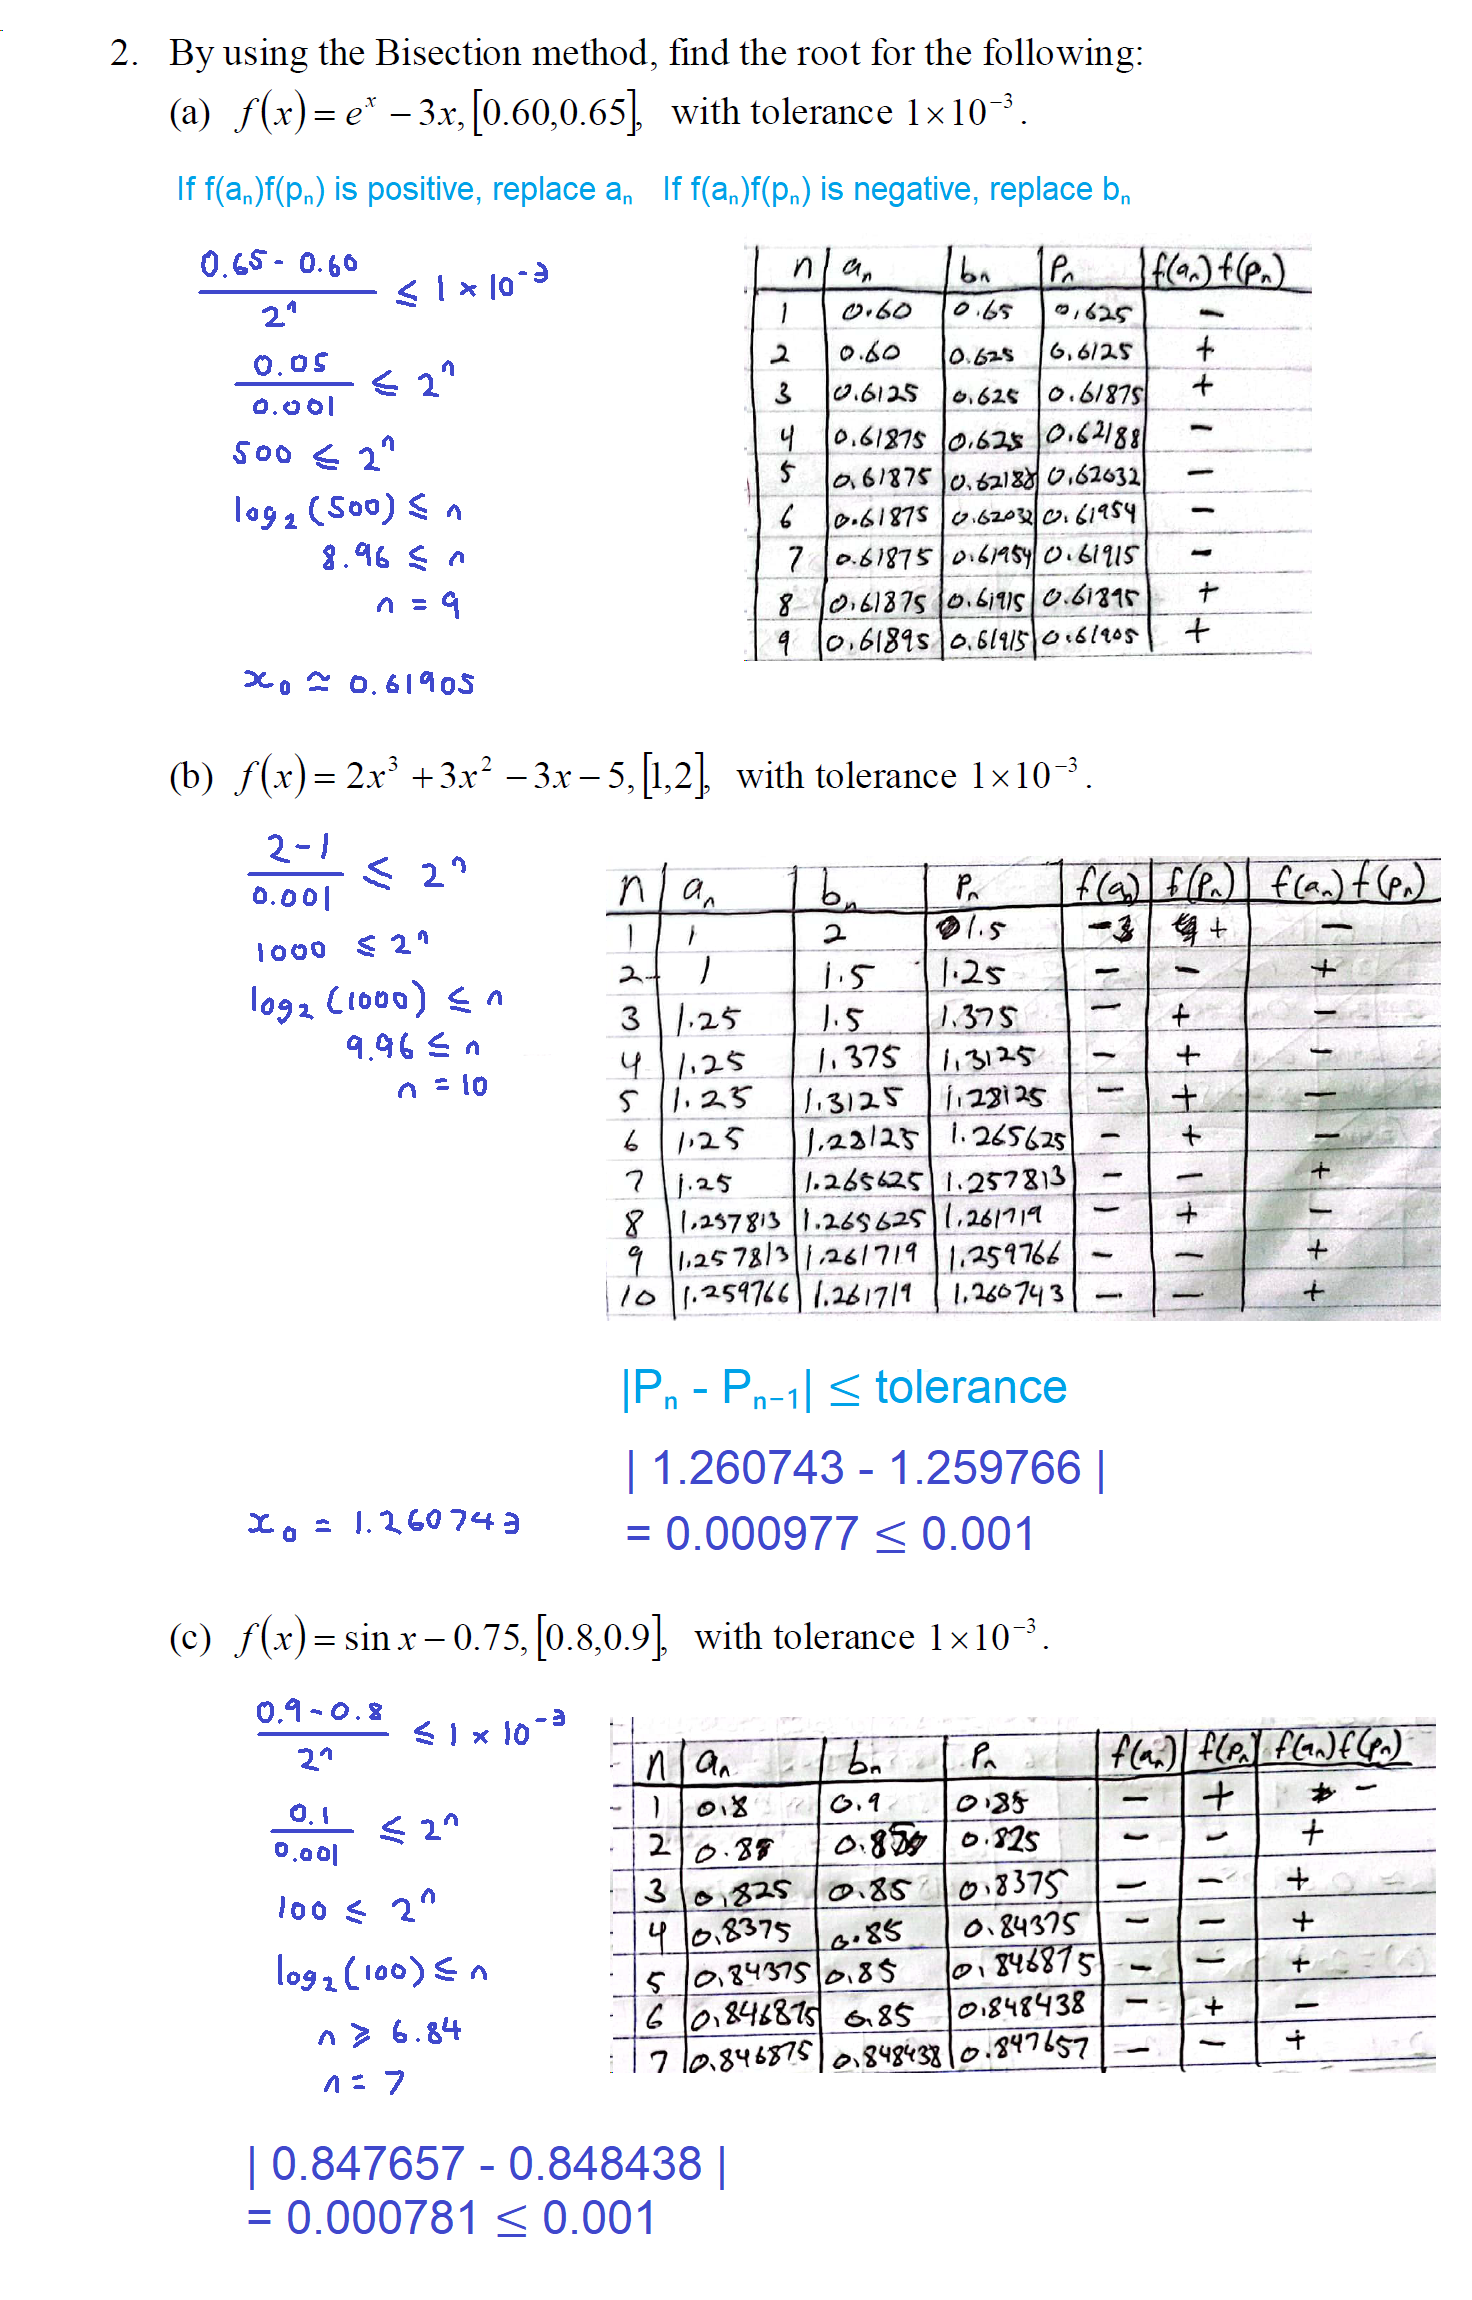 2. By using the Bisection method, find the root for the following:
(a) f(x) = e^x − 3x, [0.60,0.65], with tolerance 1×10⁻³.
If f(aₙ)f(pₙ) is positive, replace aₙ If f(aₙ)f(pₙ) is negative, replace bₙ
(0.65 - 0.60)/2ⁿ ≤ 1 × 10⁻³
0.05/0.001 ≤ 2ⁿ
500 ≤ 2ⁿ
log₂ (500) ≤ n
8.96 ≤ n
n = 9
x₀ ≈ 0.61905
n aₙ bₙ Pₙ f(aₙ)f(pₙ)
1 0.60 0.65 0.625 −
2 0.60 0.625 0.6125 +
3 0.6125 0.625 0.61875 +
4 0.61875 0.625 0.62188 −
5 0.61875 0.62188 0.62032 −
6 0.61875 0.62032 0.61954 −
7 0.61875 0.61954 0.61915 −
8 0.61875 0.61915 0.61895 +
9 0.61895 0.61915 0.61905 +
(b) f(x) = 2x³ + 3x² − 3x − 5, [1,2], with tolerance 1×10⁻³.
(2-1)/0.001 ≤ 2ⁿ
1000 ≤ 2ⁿ
log₂ (1000) ≤ n
9.96 ≤ n
n = 10
n aₙ bₙ Pₙ f(aₙ) f(Pₙ) f(aₙ)f(Pₙ)
1 1 2 1.5 − + −
2 1 1.5 1.25 − − +
3 1.25 1.5 1.375 − + −
4 1.25 1.375 1.3125 − + −
5 1.25 1.3125 1.28125 − + −
6 1.25 1.28125 1.265625 − + −
7 1.25 1.265625 1.257813 − − +
8 1.257813 1.265625 1.261719 − + −
9 1.257813 1.261719 1.259766 − − +
10 1.259766 1.261719 1.260743 − − +
|Pₙ - Pₙ₋₁| ≤ tolerance
| 1.260743 - 1.259766 |
= 0.000977 ≤ 0.001
x₀ = 1.260743
(c) f(x) = sin x − 0.75, [0.8,0.9], with tolerance 1×10⁻³.
(0.9-0.8)/2ⁿ ≤ 1 × 10⁻³
0.1/0.001 ≤ 2ⁿ
100 ≤ 2ⁿ
log₂ (100) ≤ n
n ≥ 6.84
n = 7
n aₙ bₙ Pₙ f(aₙ) f(Pₙ) f(aₙ)f(Pₙ)
1 0.8 0.9 0.85 − + −
2 0.8 0.85 0.825 − − +
3 0.825 0.85 0.8375 − − +
4 0.8375 0.85 0.84375 − − +
5 0.84375 0.85 0.846875 − − +
6 0.846875 0.85 0.848438 − + −
7 0.846875 0.848438 0.847657 − − +
| 0.847657 - 0.848438 |
= 0.000781 ≤ 0.001